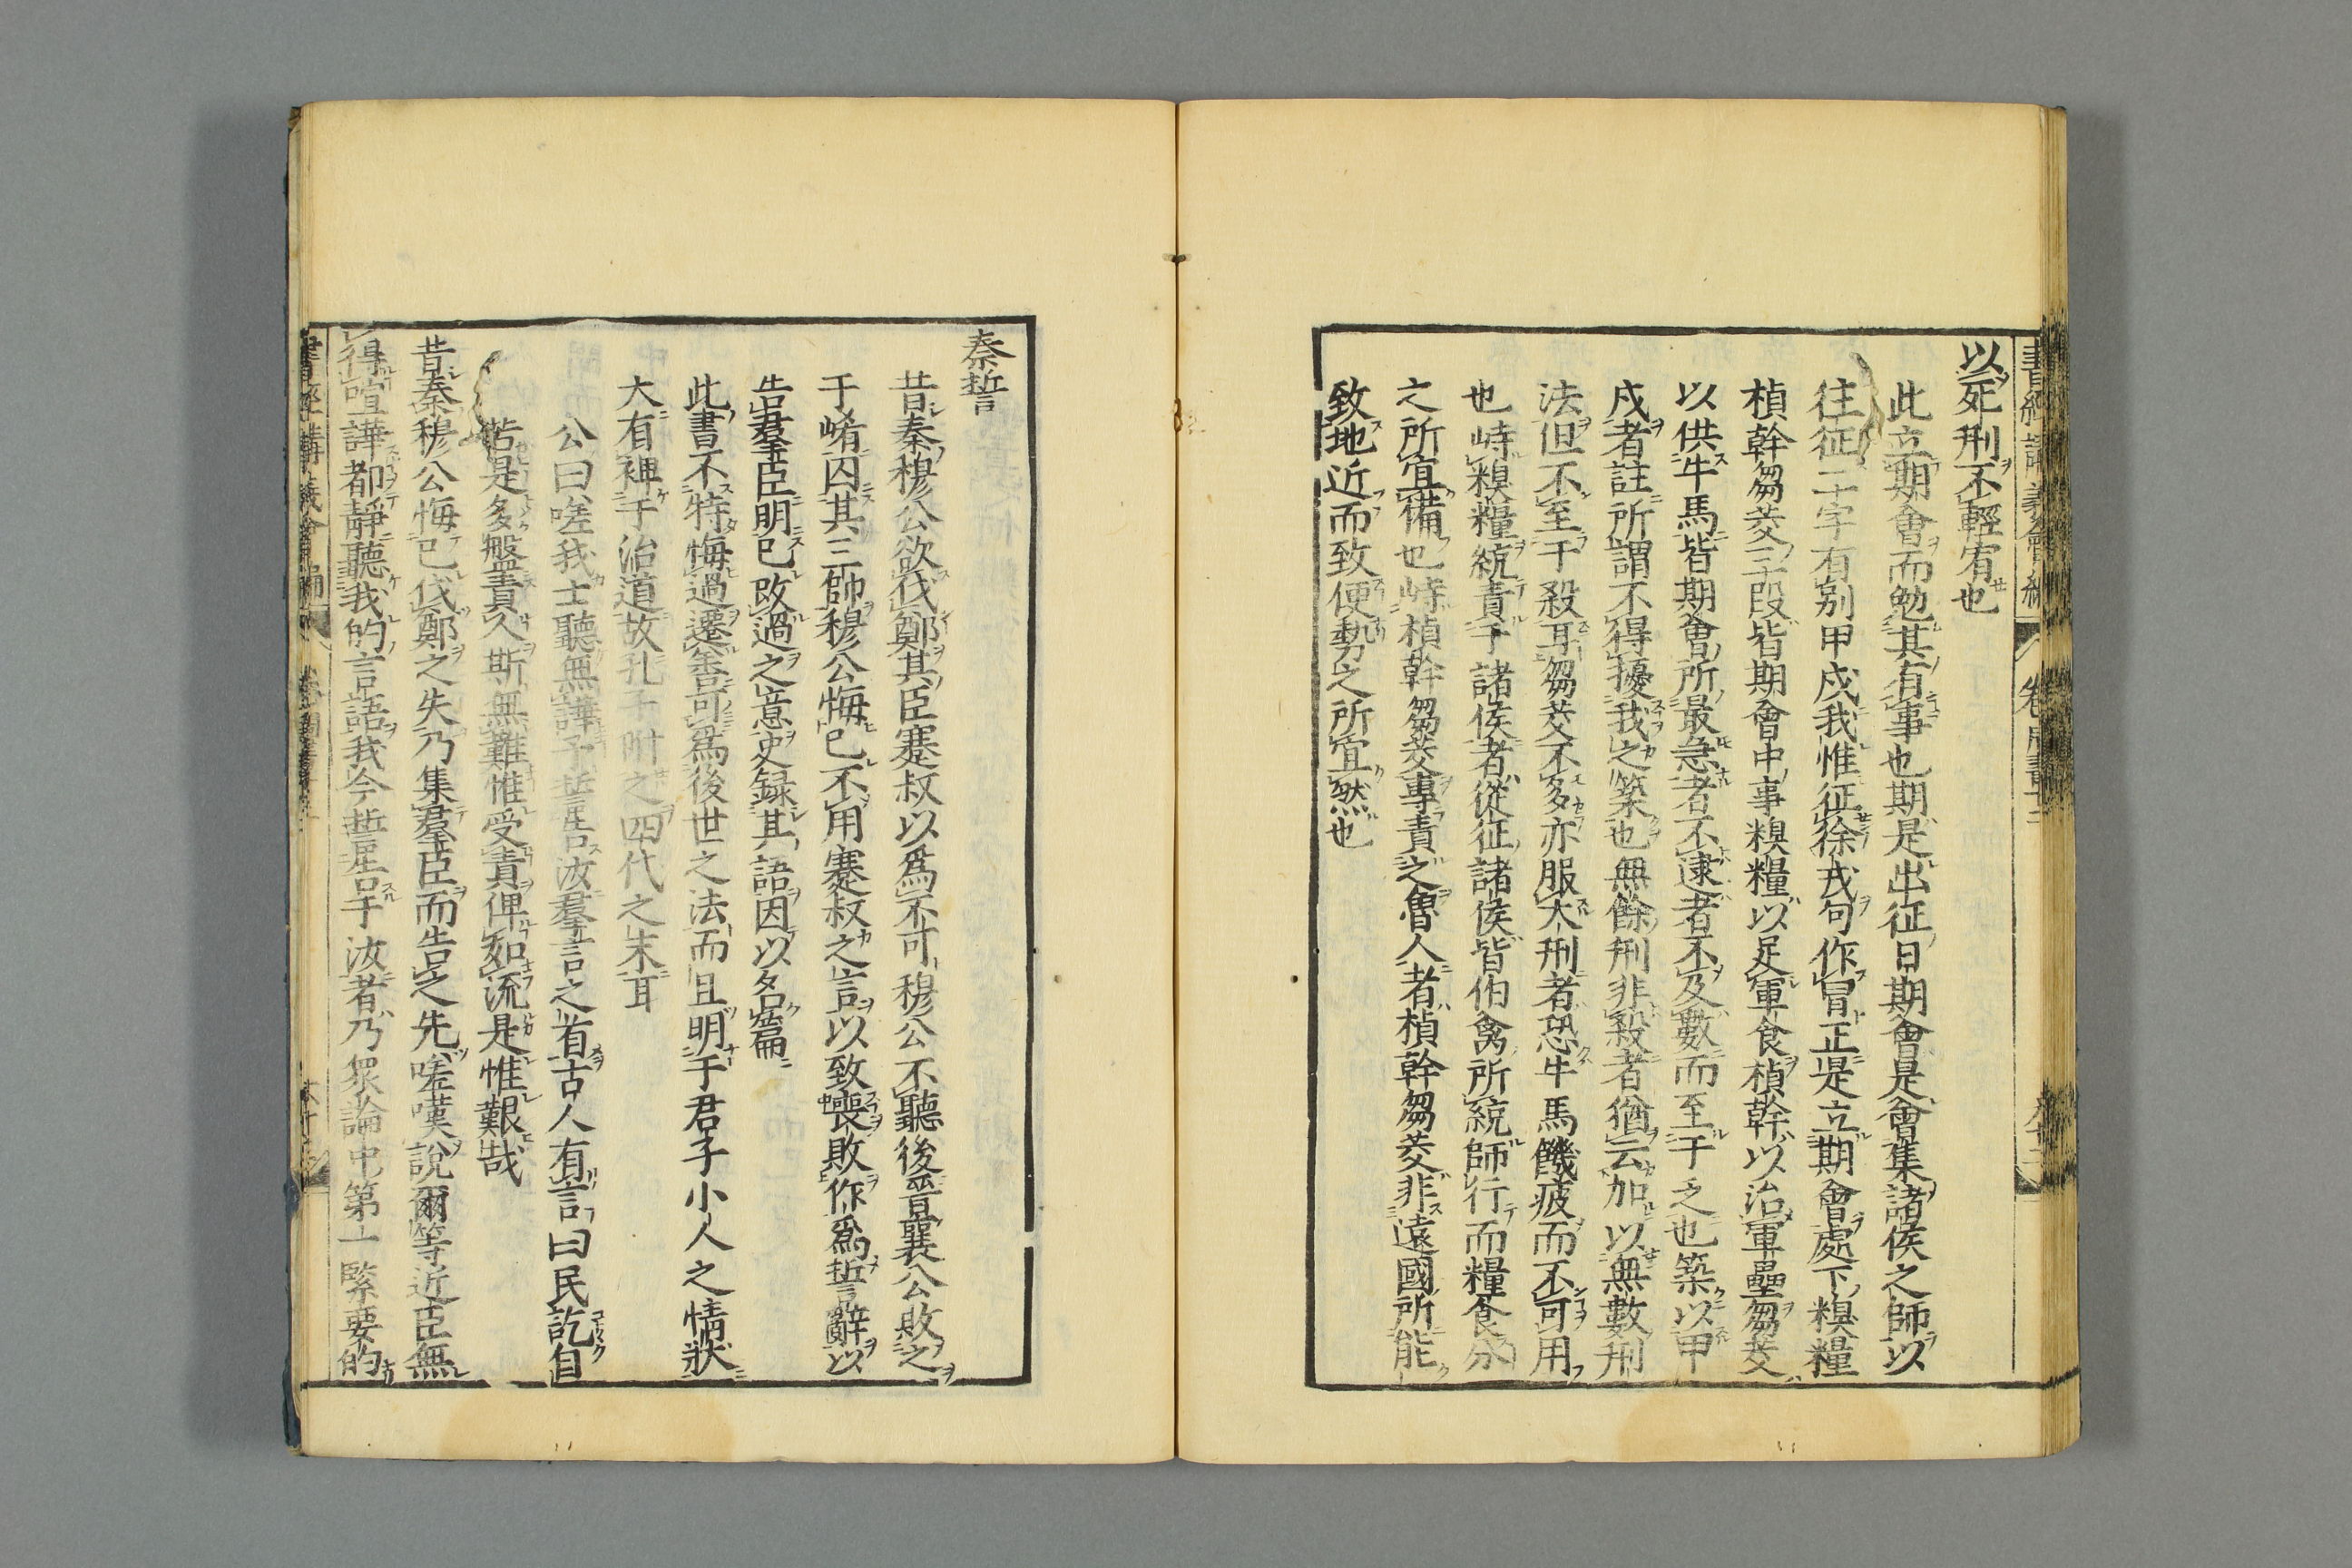 以死刑不輕宥也
此立期會而勉其有事也期是出征日期會是會集諸侯之師以
往征二字有別甲戍我惟征徐戎句作冒正是立期會處下糗糧
楨幹芻茭三段皆期會中事糗糧以足軍食楨幹以治軍壘芻茭
以供牛馬皆期會所最急者不逮者不及數而至于乏也築以甲
戍者註所謂不得擾我之築也無餘刑非殺者猶云加以無數刑
法但不至于殺耳芻茭不多亦服大刑者恐牛馬饑疲而不可用
也峙糗糧統責于諸侯者從征諸侯皆伯禽所統師行而糧食分
之所宜備也峙楨幹芻茭專責之魯人者楨幹芻茭非遠國所能
致地近而致便勢之所宜然也
秦誓
昔秦穆公欲伐鄭其臣蹇叔以爲不可穆公不聽後晉襄公敗之
于崤囚其三帥穆公悔已不用蹇叔之言以致喪敗作爲誓辭以
告羣臣明已改過之意史録其語因以名篇
此書不特悔過遷善可爲後世之法而且明于君子小人之情狀
大有裨于治道故孔子附之四代之末耳
公曰嗟我士聽無譁予誓告汝羣言之首古人有言曰民訖自
若是多盤責人斯無難惟受責俾如流是惟艱哉
昔秦穆公悔已伐鄭之失乃集羣臣而告之先嗟嘆說爾等近臣無
得喧譁都靜聽我的言語我今誓告于汝者乃衆論中第一緊要的